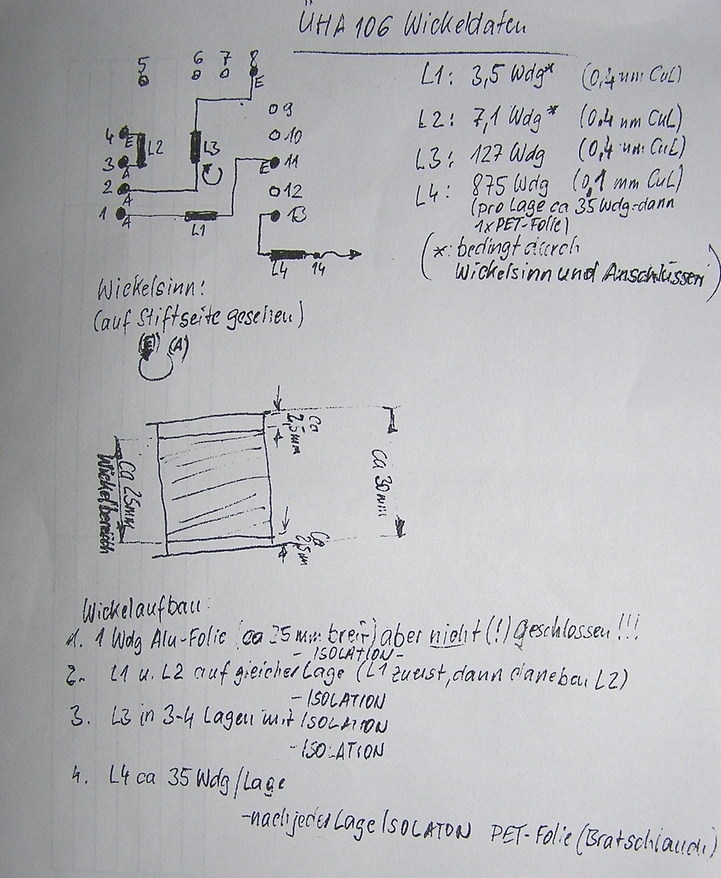 ÜHA 106 Wickeldaten
L1: 3,5 Wdg* (0,4 mm CuL)
L2: 7,1 Wdg* (0,4 mm CuL)
L3: 127 Wdg (0,4 mm CuL)
L4: 875 Wdg (0,1 mm CuL)
(pro Lage ca 35 Wdg-dann
1xPET-Folie)
(*: bedingt durch
Wickelsinn und Anschlüssen)
5
6
7
8
E
9
10
4
E
L2
L3
3
A
E
11
2
A
12
1
A
L1
13
L4
14
Wickelsinn:
(auf Stiftseite gesehen)
(E) (A)
ca
2,5mm
ca 30mm
ca 25mm
Wickelbereich
ca
2,5mm
Wickelaufbau:
1. 1 Wdg Alu-Folie (ca 25 mm breit) aber nicht (!) Geschlossen!!!
- ISOLATION-
2. L1 u. L2 auf gleicher Lage (L1 zuerst, dann daneben L2)
- ISOLATION
3. L3 in 3-4 Lagen mit ISOLATION
- ISOLATION
4. L4 ca 35 Wdg/Lage
-nach jeder Lage ISOLATON PET-Folie (Bratschlauch)